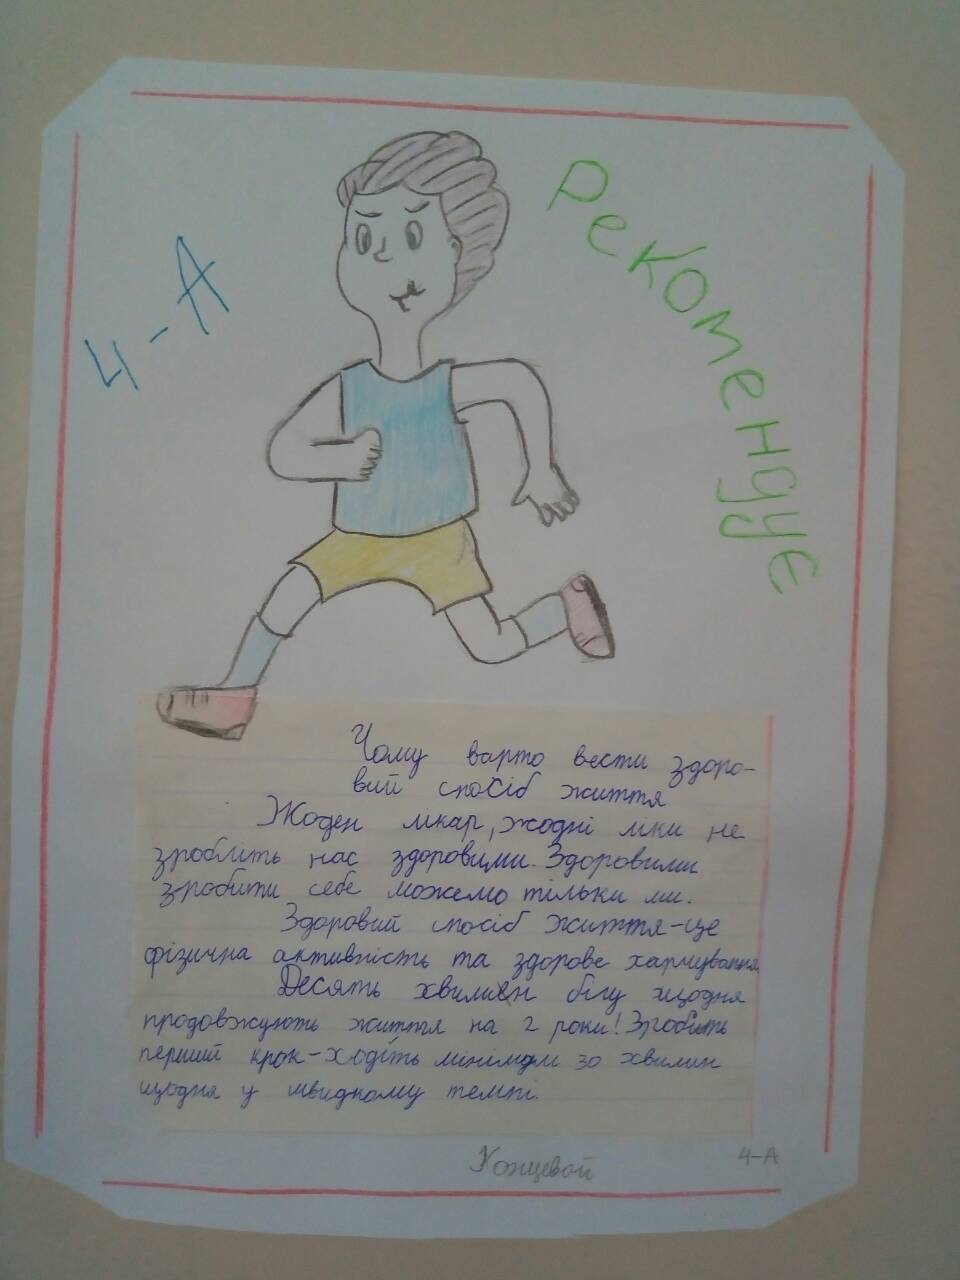 4-А
Рекомендує
Чому варто вести здоро-
вий спосіб життя
Жоден лікар, жодні ліки не
зроблять нас здоровими. Здоровими
зробити себе можемо тільки ми.
Здоровий спосіб життя-це
фізична активність та здорове харчування
Десять хвилин бігу щодня
продовжують життя на 2 роки! Зробить
перший крок-ходіть мінімум 30 хвилин
щодня у швидкому темпі.
Концевой 4-А